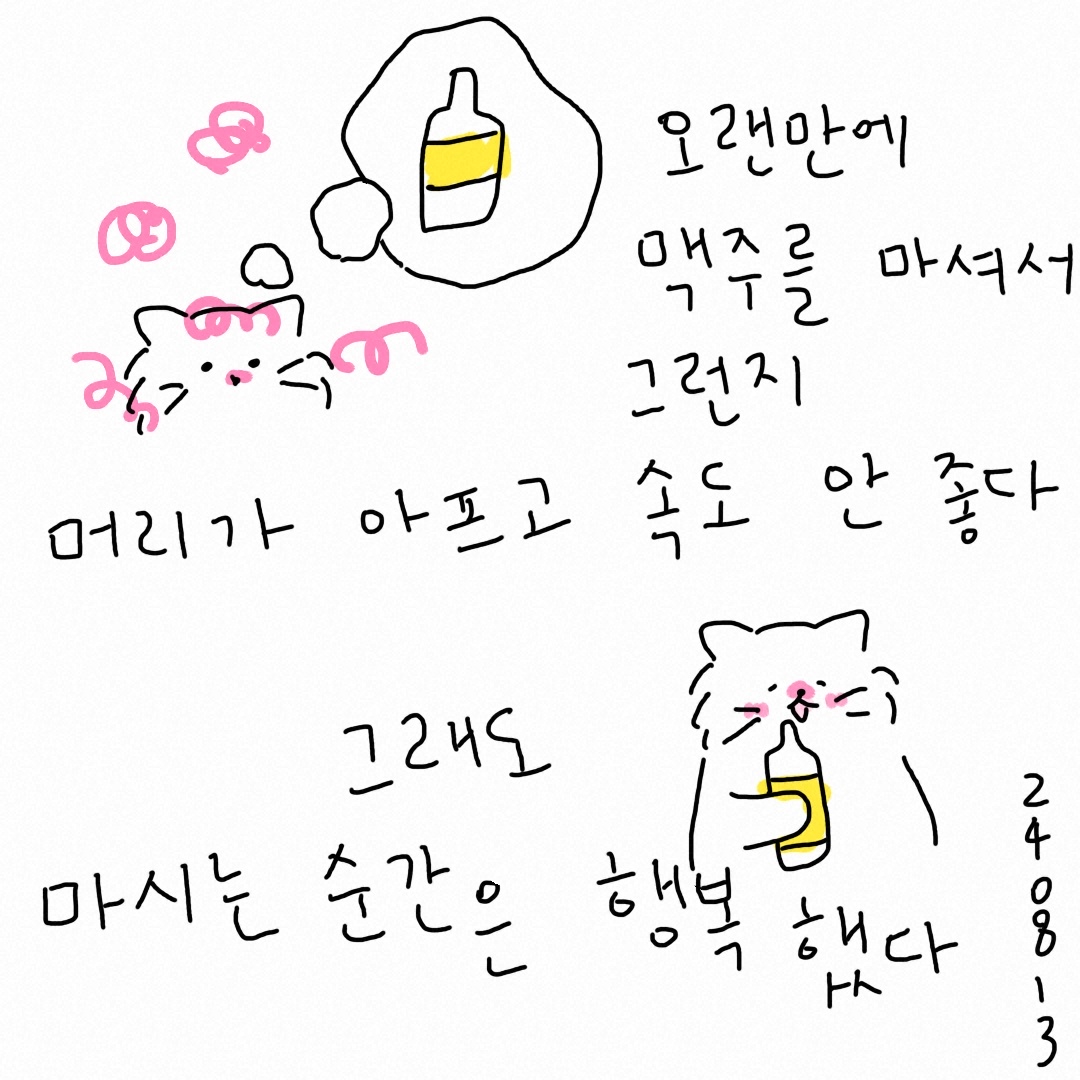 오랜만에
맥주를 마셔서
그런지
머리가 아프고 속도 안 좋다
그래도
마시는 순간은 행복 했다
240813